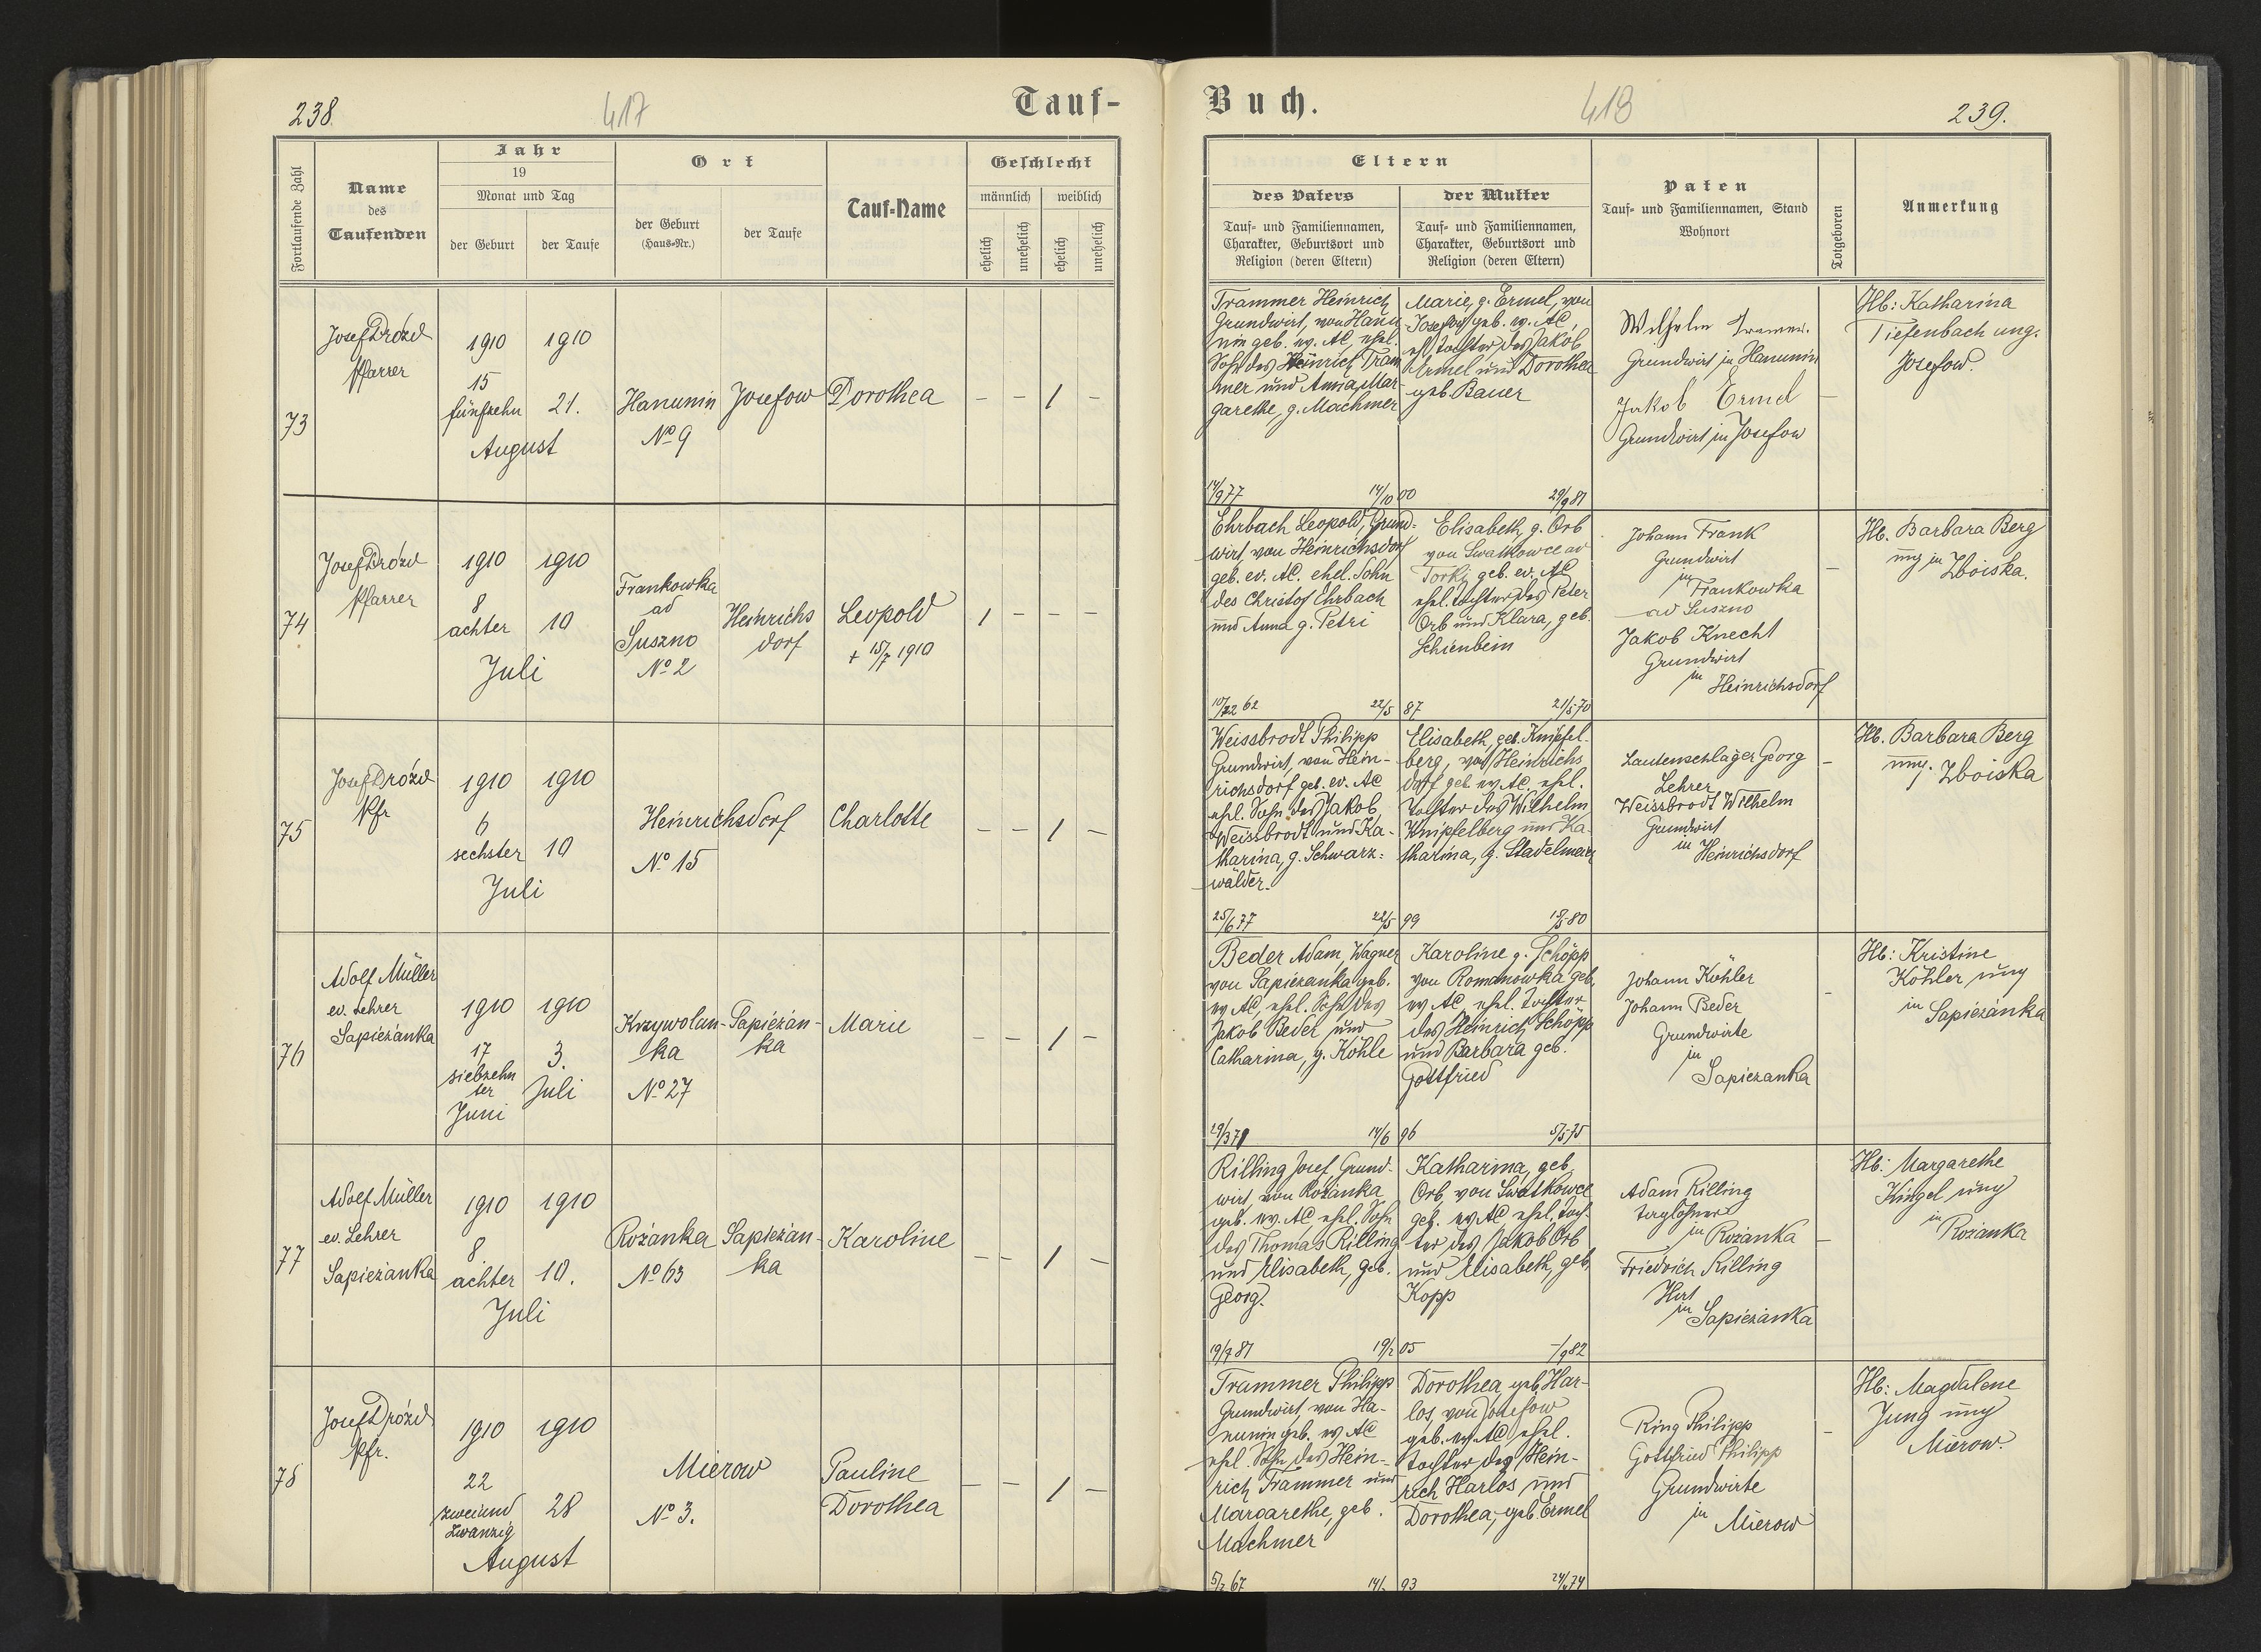 238.
417
Tauf-
Buch.
418
239.
Fortlaufende Zahl
Name
des
Taufenden
Jahr
19
Monat und Tag
der Geburt
der Taufe
Ort
der Geburt
(Haus-Nr.)
der Taufe
Tauf-Name
Geschlecht
männlich
weiblich
ehelich
unehelich
ehelich
unehelich
Eltern
des Vaters
Tauf- und Familiennamen,
Charakter, Geburtsort und
Religion (deren Eltern)
der Mutter
Tauf- und Familiennamen,
Charakter, Geburtsort und
Religion (deren Eltern)
Paten
Tauf- und Familiennamen, Stand
Wohnort
Totgeboren
Anmerkung
73
Josef Drózd
Pfarrer
1910
15
fünfzehn
1910
21.
August
Hanunin
No 9
Josefow
Dorothea
- - 1 -
Trammer Heinrich
Grundwirt, von Hanu
nin geb. ev. AC, ehel.
Sohn des Heinrich Tram
mer und Anna Mar-
garethe, g. Machmer
14/9 77
14/10 00
Marie, g. Ermel, von
Josefow geb. ev. AC,
eh. Tochter des Jakob
Ermel und Dorothea
geb. Bauer
29/9 81
Wilhelm
Grundwirt in Hanunin
Jakob Ermel
Grundwirt in Josefow
-
Hb: Katharina
Tiefenbach ung.
Josefow.
74
Josef Drózd
Pfarrer
1910
8
achter
1910
10
Juli
Frankowka
ad
Suszno
No 2
Heinrichs
dorf
Leopold
+ 15/7 1910
1 - - -
Ehrbach Leopold, Grund-
wirt von Heinrichsdorf
geb. ev. AC. ehel. Sohn
des Christof Ehrbach
und Anna g. Petri
62
22/5 87
Elisabeth g. Orb
von Swatkowce ad
Torki geb. ev. AC
ehel. Tochter des Peter
Orb und Klara, geb.
Schienbein
21/5 70
Johann Frank
Grundwirt
in Frankowka
ad Suszno
Jakob Knecht
Grundwirt
in
Heinrichsdorf
-
Hb. Barbara Berg
ung in Zboiska.
75
Josef Drózd
Pfr
1910
6
sechster
1910
10
Juli
Heinrichsdorf
No 15
Charlotte
- - 1 -
Weissbrodt Philipp
Grundwirt, von Hein-
richsdorf geb. ev. AC
ehel. Sohn des Jakob
Weissbrodt und Ka-
tharina, g. Schwarz-
wälder.
25/6 77
22/5 99
Elisabeth, geb. Knipfel-
berg, von Heinrichs
dorf geb. ev. AC, ehel.
Tochter des Wilhelm
Knipfelberg und Ka-
tharina, g. Stadelmeier
80
Lautenschläger Georg
Lehrer
Weissbrodt Wilhelm
Grundwirt
in
Heinrichsdorf
-
Hb. Barbara Berg
ung. Zboiska
76
Adolf Müller
ev. Lehrer
Sapieżanka
1910
17
siebzehn
ter
Juni
1910
3.
Juli
Krzywolan-
ka
No 27
Sapieżan-
ka
Marie
- - 1 -
Beder Adam, Wagner
von Sapieżanka geb.
ev AC, ehel. Sohn des
Jakob Beder und
Catharina, g. Köhle
29/3 71
14/6 96
Karoline g. Schöpp
von Romanowka geb.
ev AC ehel. Tochter
des Heinrich Schöpp
und Barbara geb.
Gottfried
5/5 75
Johann Köhler
Johann Beder
Grundwirte
in
Sapieżanka
-
Hb: Kristine
Köhler ung
in Sapieżanka
77
Adolf Müller
ev. Lehrer
Sapieżanka
1910
8
achter
1910
10.
Juli
Rożanka
No 63
Sapieżan-
ka
Karoline
- - 1 -
Rilling Josef, Grund-
wirt von Rożanka
geb. ev. AC, ehel. Sohn
des Thomas Rilling
und Elisabeth, geb.
Georg.
19/7 81
19/2 05
Katharina, geb.
Orb von Swatkowce
geb. ev AC ehel. Toch-
ter des Jakob Orb
und Elisabeth, geb.
Kopp
-/9 82
Adam Rilling
Taglöhner
in Rożanka
Friedrich Rilling
Hirt
in
Sapieżanka
-
Hb: Margarethe
Kingel ung
in
Rożanka
78
Josef Drózd
Pfr.
1910
22
zweiund
zwanzig
1910
28
August
Mierow
No 3.
Pauline
Dorothea
- - 1 -
Trammer Philipp
Grundwirt von Ha-
nunin geb. ev AC
ehel. Sohn des Hein-
rich Trammer und
Margarethe, geb.
Machmer
5/2 67
93
Dorothea, geb. Har-
los, von Josefow
geb. ev. AC, ehel.
Tochter des Hein-
rich Harlos und
Dorothea, geb. Ermel
74
Ring Philipp
Gottfried Philipp
Grundwirte
in Mierow
-
Hb: Magdalene
Jung ung
Mierow.